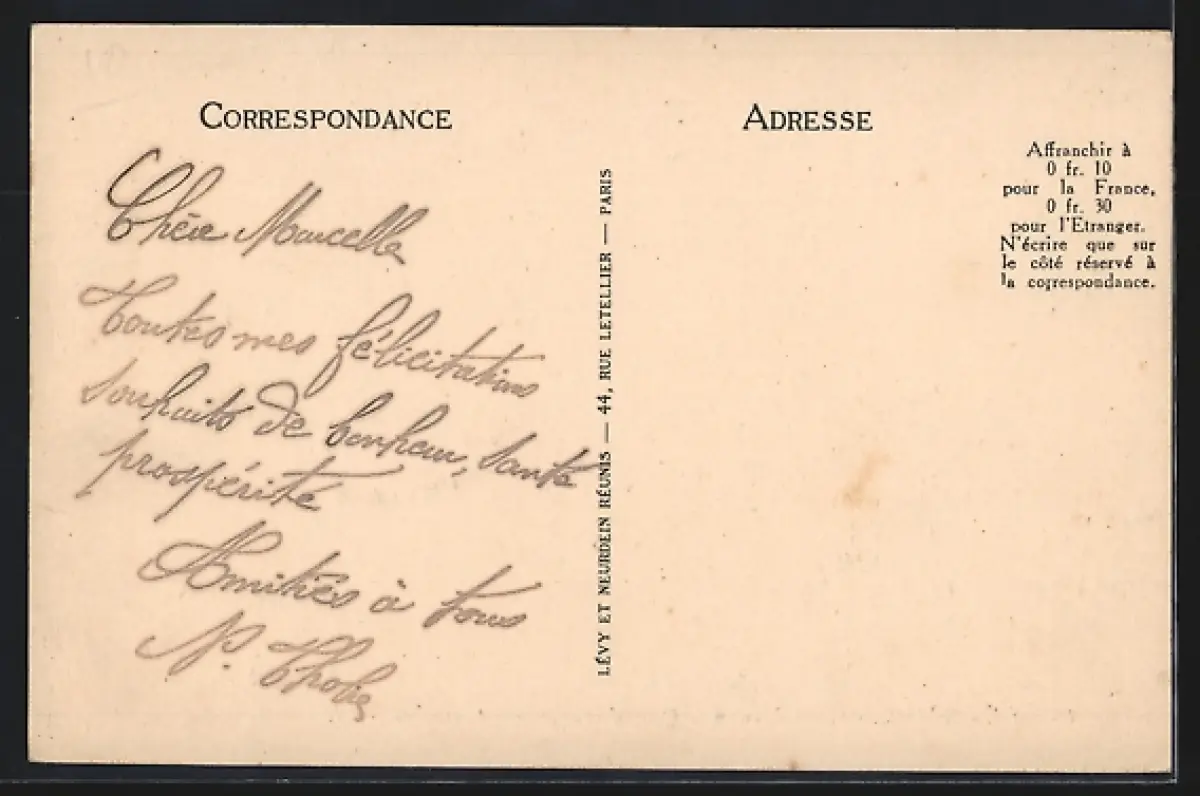 CORRESPONDANCE
Chère Marcelle
Toutes mes félicitations
souhaits de bonheur, santé
prospérité
Amitiés à tous
LÉVY ET NEURDEIN RÉUNIS — 44, RUE LETELLIER — PARIS
ADRESSE
Affranchir à
0 fr. 10
pour la France,
0 fr. 30
pour l'Etranger.
N'écrire que sur
le côté réservé à
la correspondance.